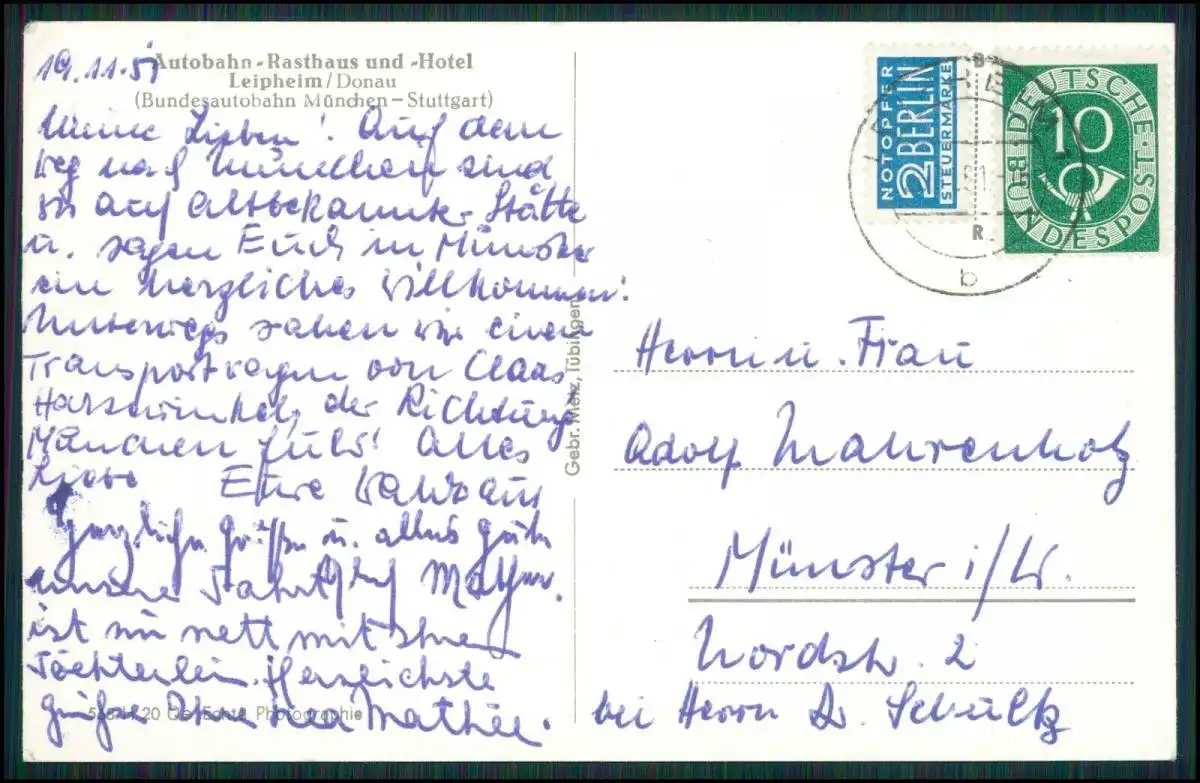 19.11.51
Autobahn-Rasthaus und -Hotel
Leipheim/Donau
(Bundesautobahn München–Stuttgart)
Meine Lieben! Auf dem
Weg nach München sind
wir auf altbekannter Stätte
u. sagen Euch in Münster
ein herzliches Willkommen!
Unterwegs sahen wir einen
Transportwagen von Claas
Harsewinkel, der Richtung
München fuhr! Alles
Liebe Eure
Herzliche Grüße u. alles Gute
unsere Fahrt
ist so nett mit Ihrem
Töchterlein. Herzlichste
Grüße Mathée.
568 H 20 Echte Photographie
Gebr. Metz, Tübingen
NOTOPFER
2 BERLIN
STEUERMARKE
DEUTSCHE
BUNDESPOST
10
b
Herrn u. Frau
Adolf Mahrenholz
Münster i/W.
Nordstr. 2
bei Herrn Dr. Schultz